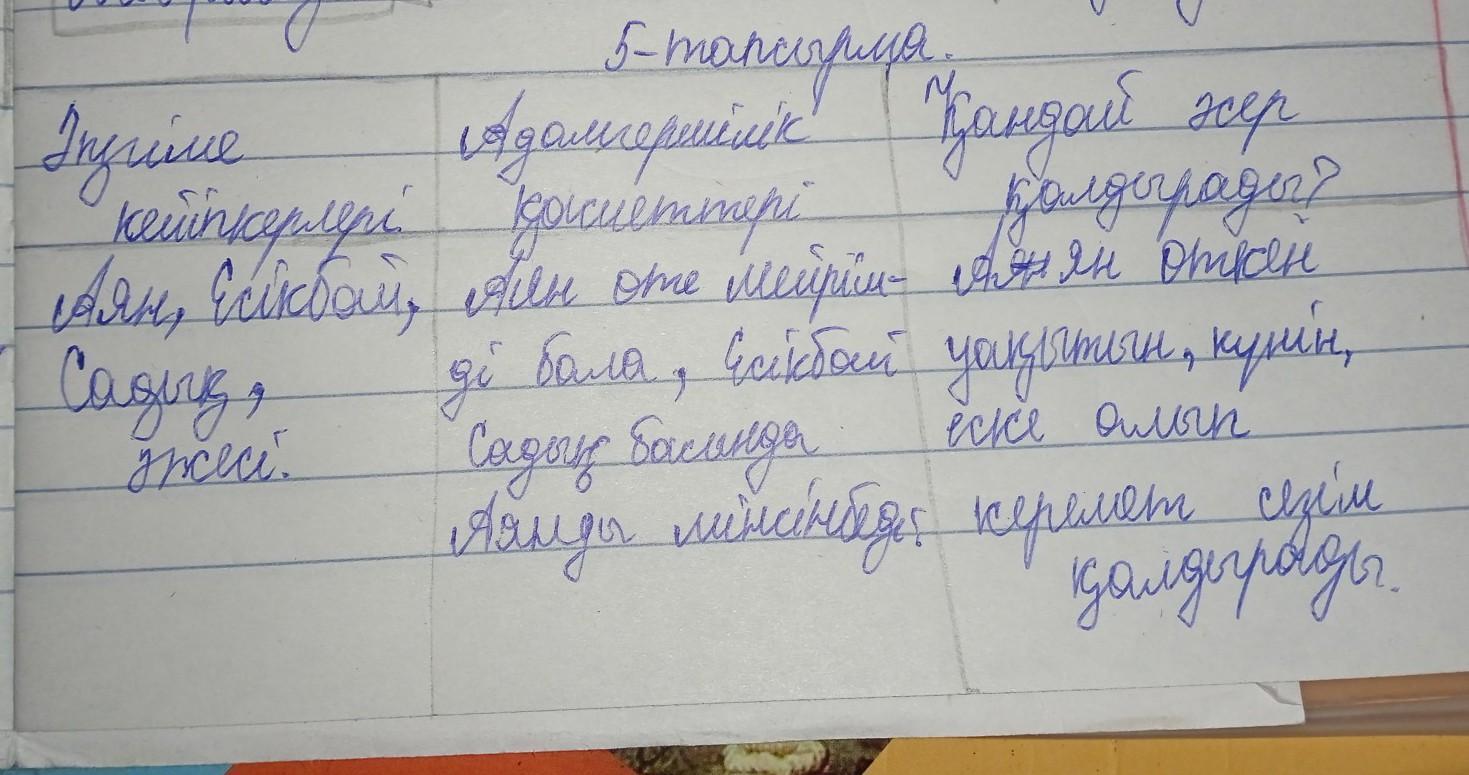 5-тапсырма.
Әңгіме
кейіпкерлері.
Аян, Есікбай,
Садық,
әжесі.
Адамгершілік
қасиеттері
Аян өте мейрім-
ді бала, Есікбай
Садық басында
Аянды мінсінбеді.
Қандай әсер
қалдырады?
Аян өткен
уақытын, күнін,
еске алып
керемет сезім
қалдырады.